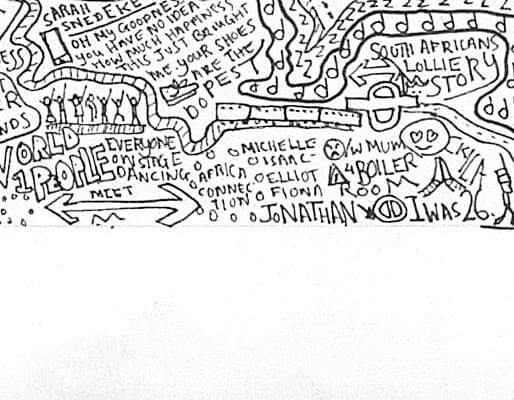 SARAH
SNEDEKE
OH MY GOODNES
YOU HAVE NO IDEA
HOW MUCH HAPPINESS
THIS JUST BROUGHT
ME YOUR SHOES
ARE THE
DOPEST
SOUTH AFRICANS
LOLLIE
STORY
WORLD
1 PEOPLE
EVERYONE
ON STAGE
DANCING
MEET
AFRICA
CONNEC-
TION
MICHELLE
ISAAC
ELLIOT
FIONA
JONATHAN
/W MUM
4 BOILER
ROOM
I WAS 26.